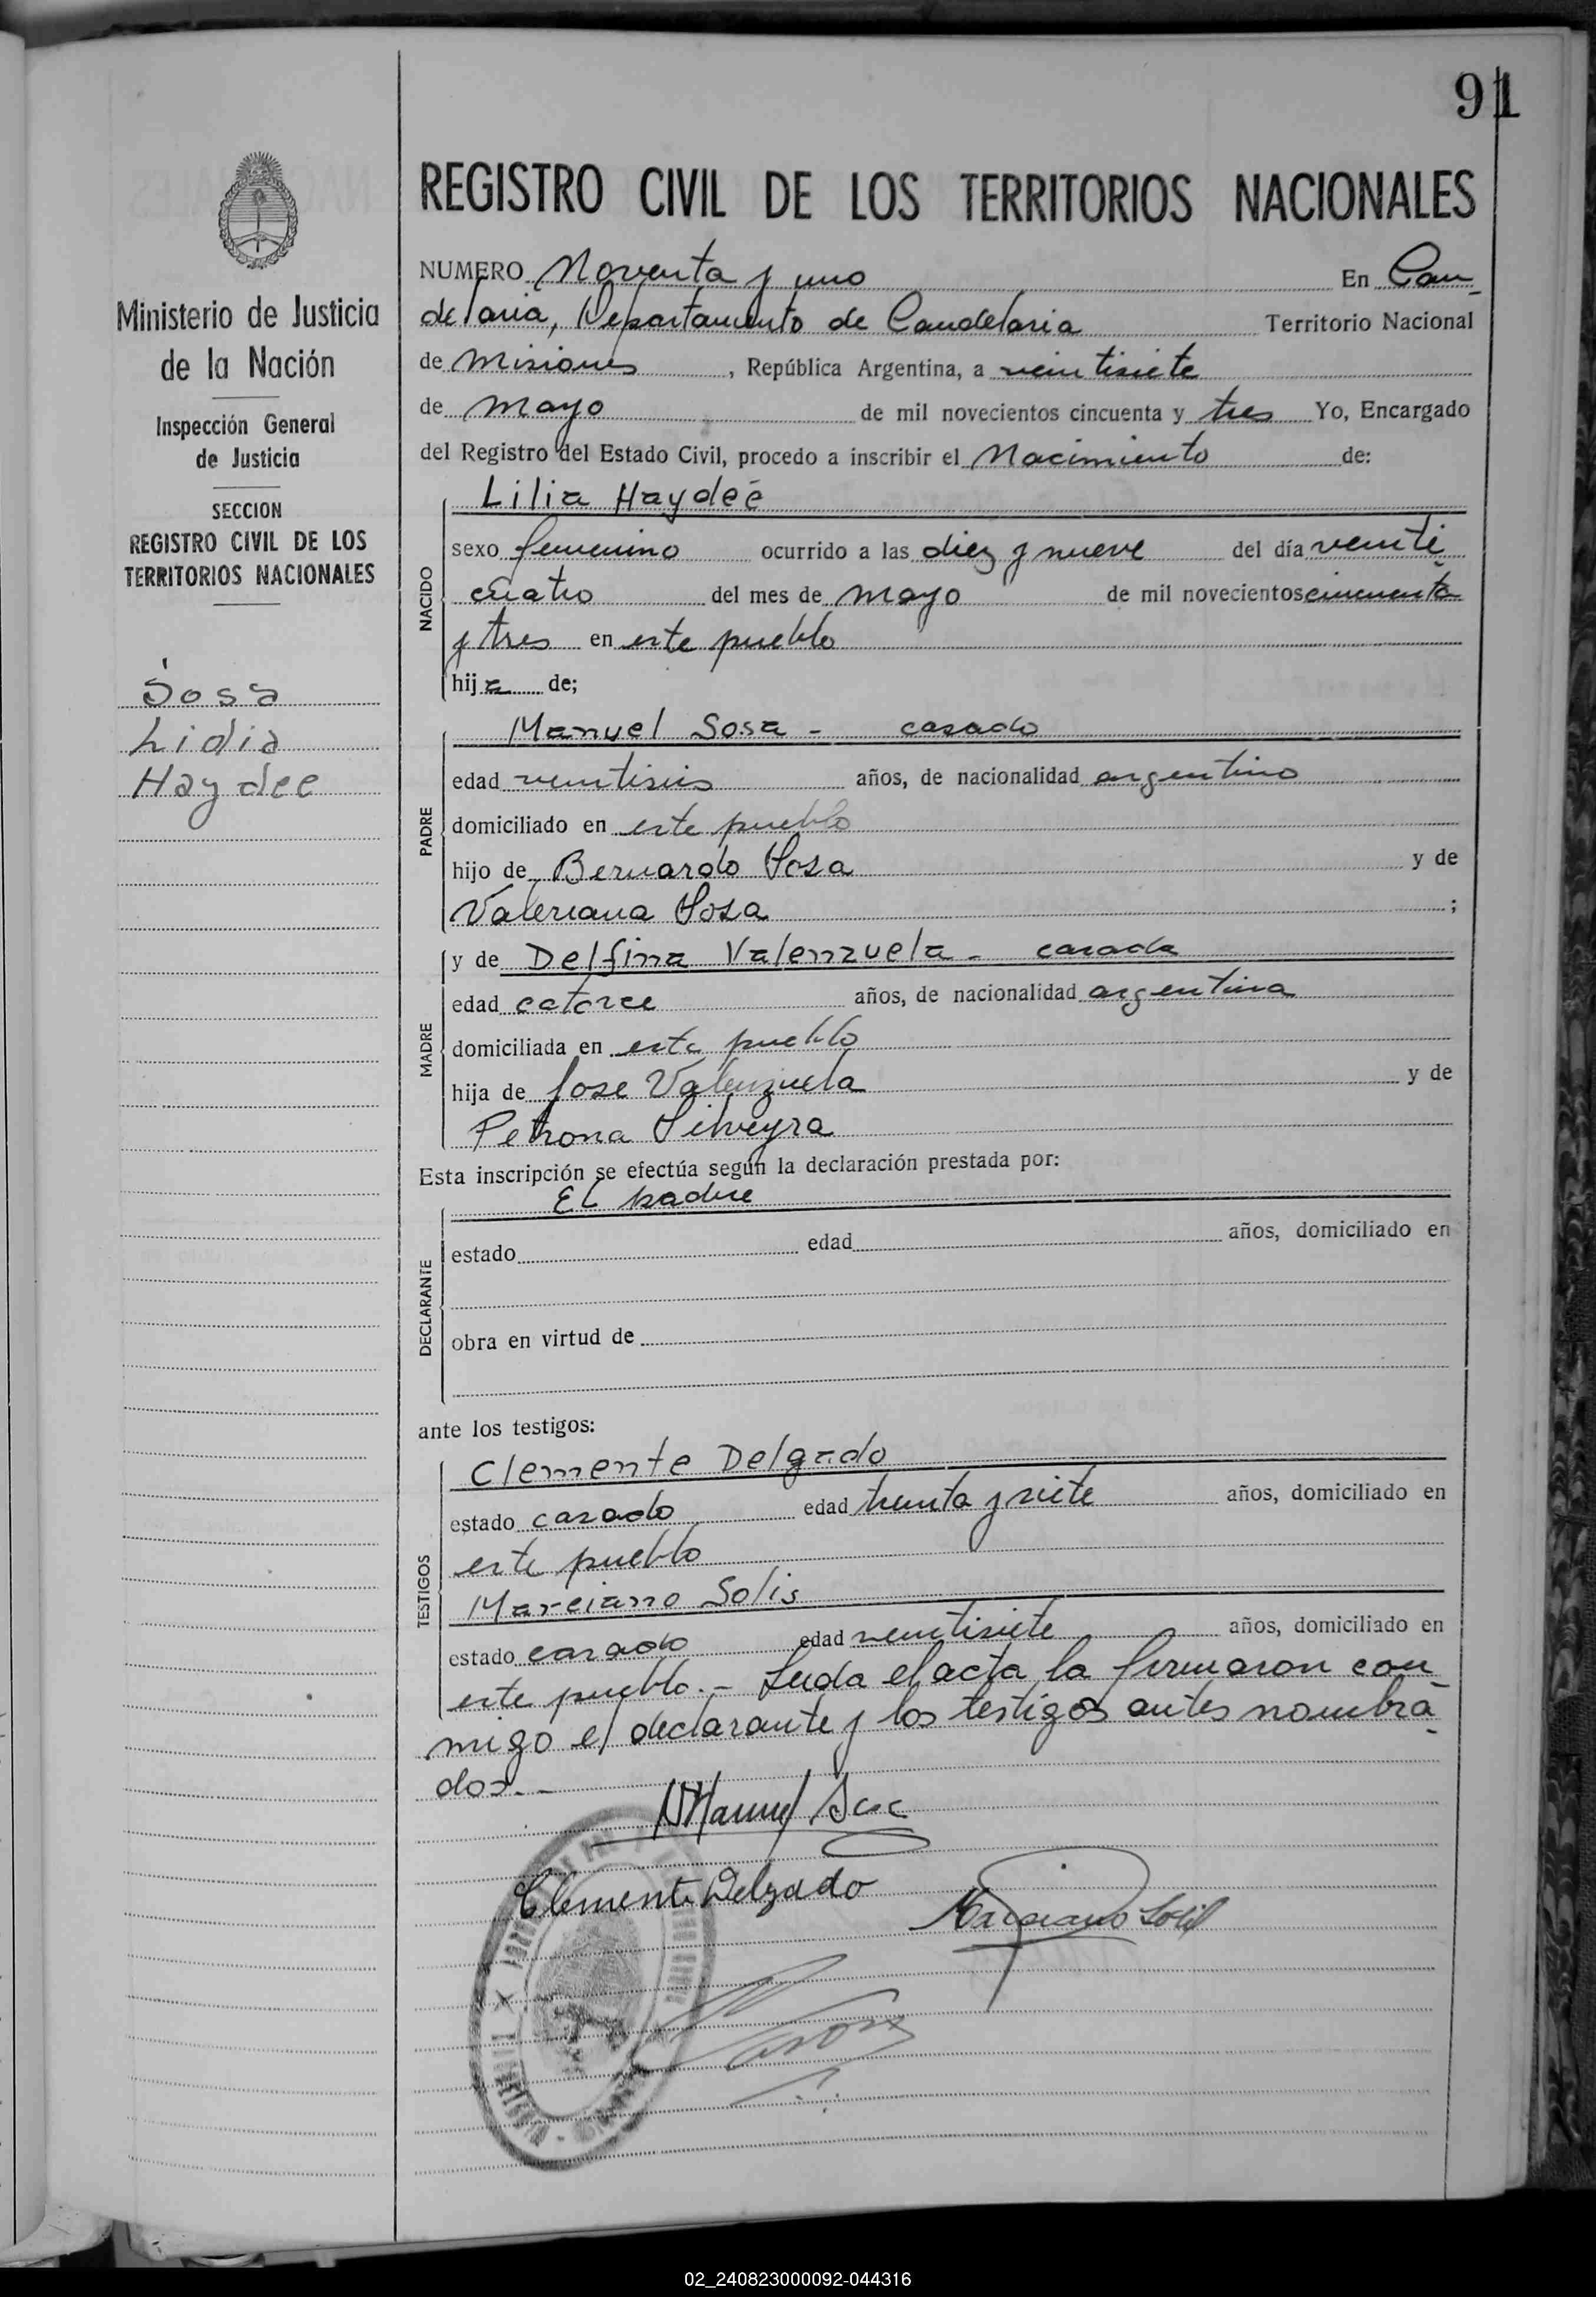 91
REGISTRO CIVIL DE LOS TERRITORIOS NACIONALES
NUMERO Noventa y uno En Can-
delaria, Departamento de Candelaria Territorio Nacional
de Misiones, República Argentina, a veintisiete
de mayo de mil novecientos cincuenta y tres Yo, Encargado
del Registro del Estado Civil, procedo a inscribir el Nacimiento de:
Ministerio de Justicia
de la Nación
Inspección General
de Justicia
SECCION
REGISTRO CIVIL DE LOS
TERRITORIOS NACIONALES
Sosa
Lidia
Haydee
NACIDO
Lilia Haydeé
sexo femenino ocurrido a las diez y nueve del día veinti-
cuatro del mes de mayo de mil novecientos cincuenta
y tres en este pueblo
hija de;
PADRE
Manuel Sosa - casado
edad veintiseis años, de nacionalidad argentino
domiciliado en este pueblo
hijo de Bernardo Sosa y de
Valeriana Sosa ;
MADRE
y de Delfina Valenzuela - casada
edad catorce años, de nacionalidad argentina
domiciliada en este pueblo
hija de Jose Valenzuela y de
Petrona Silveyra
Esta inscripción se efectúa según la declaración prestada por:
DECLARANTE
El padre
estado edad años, domiciliado en
obra en virtud de
ante los testigos:
TESTIGOS
Clemente Delgado
estado casado edad treinta y siete años, domiciliado en
este pueblo
Marciano Solis
estado casado edad veintisiete años, domiciliado en
este pueblo.- Leida el acta la firmaron con-
migo el declarante y los testigos antes nombra-
dos.-
Manuel Sosa
Clemente Delgado
Marciano Solis
02_240823000092-044316